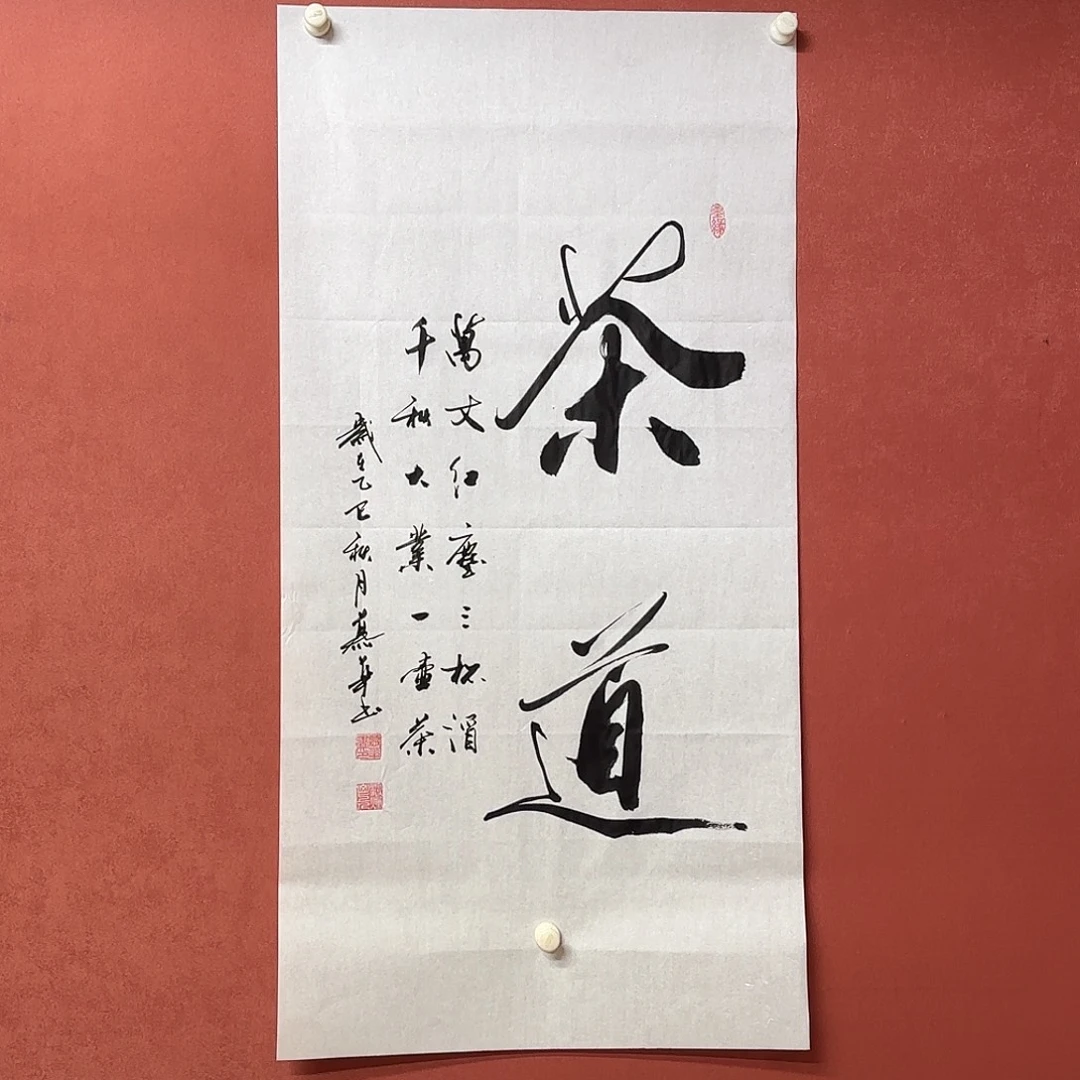 茶道
萬丈红塵三杯酒
千秋大業一壺茶
歲在乙巳秋月燕華书